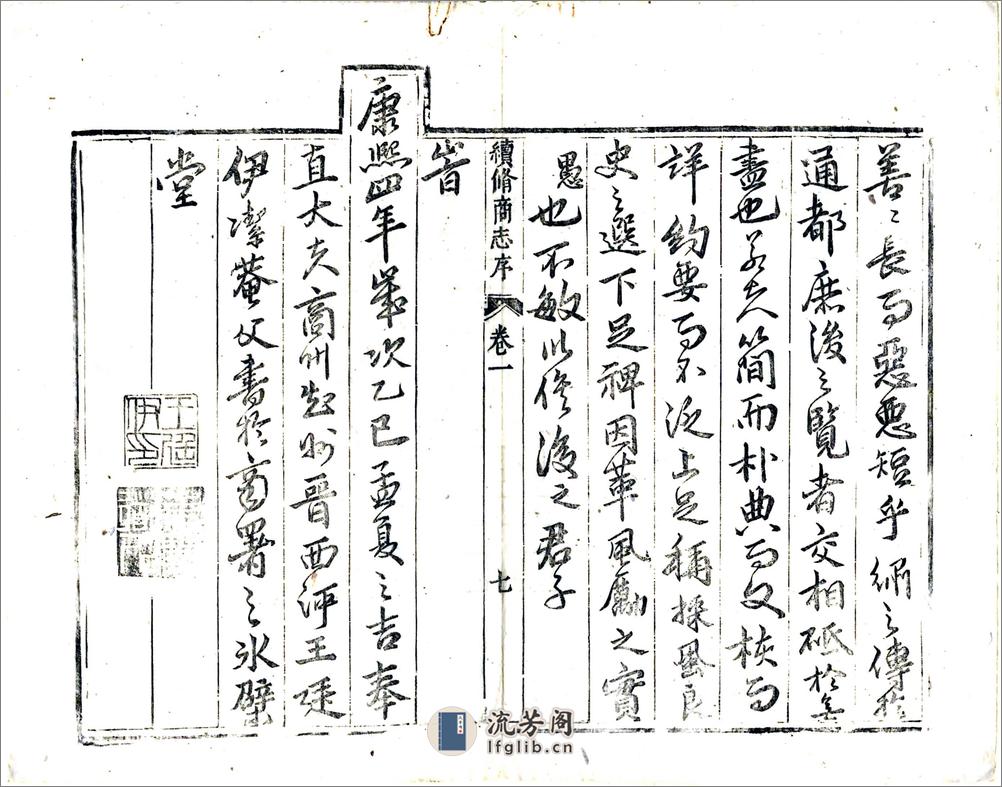 善〻長而惡惡短乎繡之傳於
通都庶後之覽者交相砥於無
盡也若夫簡而朴典而文核而
詳約要而不泛上足稱採風良
史之選下足裨因革風勵之實
愚也不敏以俟後之君子
續脩商志序
卷一
七
峕
康熙四年歲次乙巳孟夏之吉奉
直大夫商州知州晉西河王廷
伊潔菴父書於商署之冰檗
堂
王廷伊印
流芳阁
lfglib.cn